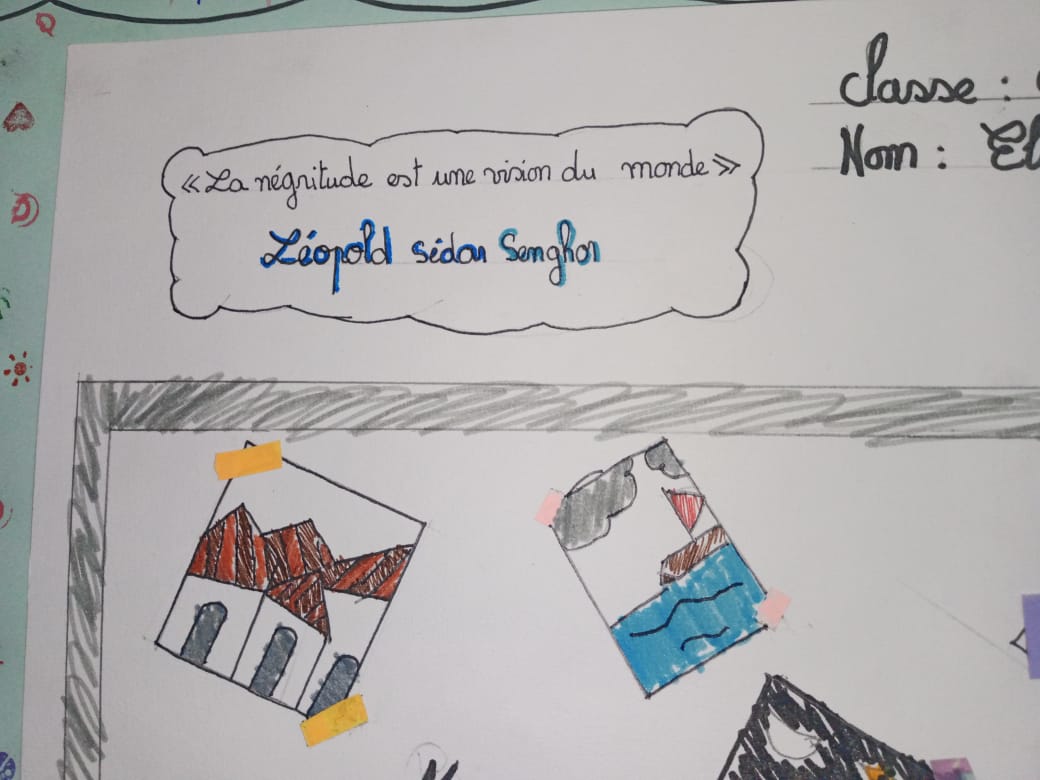 Classe :
Nom : El
« La négritude est une vision du monde »
Léopold sédar Senghor